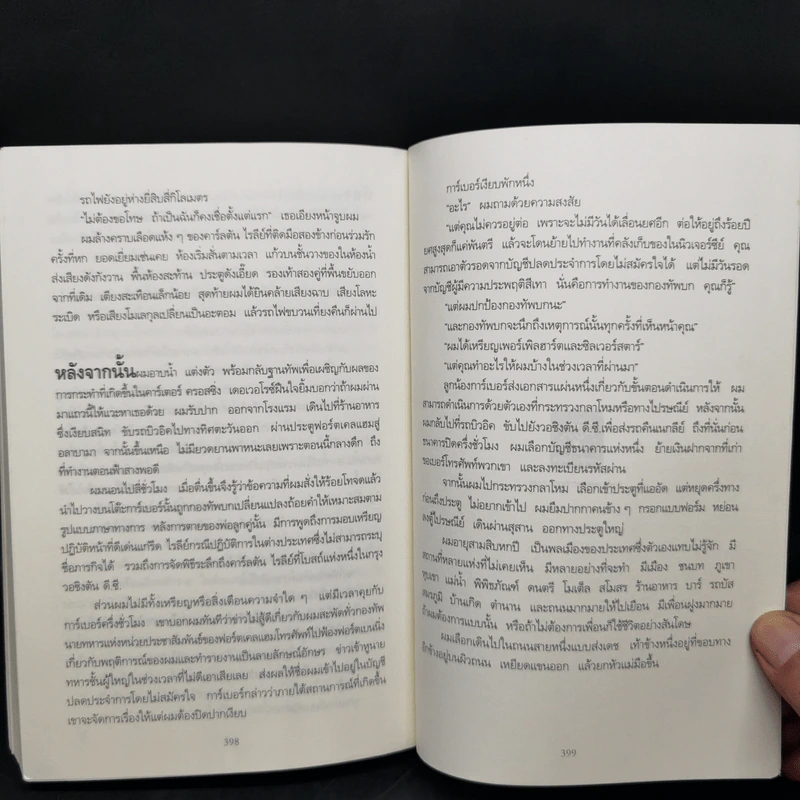 รถไฟยังอยู่ห่างยี่สิบสี่กิโลเมตร
"ไม่ต้องขอโทษ ถ้าเป็นฉันก็คงเชื่อตั้งแต่แรก" เธอเอียงหน้าจูบผม
ผมล้างคราบเลือดแห้ง ๆ ของคาร์ลตัน ไรลีย์ที่ติดมือสองข้างก่อนร่วมรัก
ครั้งที่หก ยอดเยี่ยมเช่นเคย ห้องเริ่มสั่นตามเวลา แก้วบนชั้นวางของในห้องน้ำ
ส่งเสียงดังกังวาน พื้นห้องสะท้าน ประตูดังเอี๊ยด รองเท้าสองคู่ที่พื้นขยับออก
จากที่เดิม เตียงสะเทือนเล็กน้อย สุดท้ายผมได้ยินคล้ายเสียงฉาบ เสียงโลหะ
ระเบิด หรือเสียงโมเลกุลเปลี่ยนเป็นอะตอม แล้วรถไฟขบวนเที่ยงคืนก็ผ่านไป
หลังจากนั้นผมอาบน้ำ แต่งตัว พร้อมกลับฐานทัพเพื่อเผชิญกับผลของ
การกระทำที่เกิดขึ้นในคาร์เตอร์ ครอสซิ่ง เดอเวอโรซ์ฝืนใจยิ้มบอกว่าถ้าผมผ่าน
มาแถวนี้ให้แวะหาเธอด้วย ผมรับปาก ออกจากโรงแรม เดินไปที่ร้านอาหาร
ซึ่งเงียบสนิท ขับรถบิวอิคไปทางทิศตะวันออก ผ่านประตูฟอร์ตเคลแฮมสู่
อลาบามา จากนั้นขึ้นเหนือ ไม่มียวดยานพาหนะเลยเพราะตอนนี้กลางดึก ถึง
ที่ทำงานตอนฟ้าสางพอดี
ผมนอนไปสี่ชั่วโมง เมื่อตื่นขึ้นจึงรู้ว่าข้อความที่ผมสั่งให้ร้อยโทจดแล้ว
นำไปวางบนโต๊ะการ์เบอร์นั้นถูกกองทัพบกเปลี่ยนแปลงถ้อยคำให้เหมาะสมตาม
รูปแบบภาษาทางการ หลังการตายของพ่อลูกคู่นั้น มีการพูดถึงการมอบเหรียญ
ปฏิบัติหน้าที่ดีเด่นแก่รีด ไรลีย์กรณีปฏิบัติการในต่างประเทศซึ่งไม่สามารถระบุ
ชื่อภารกิจได้ รวมถึงการจัดพิธีระลึกถึงคาร์ลตัน ไรลีย์ที่โบสถ์แห่งหนึ่งในกรุง
วอชิงตัน ดี.ซี.
ส่วนผมไม่มีทั้งเหรียญหรือสิ่งเตือนความจำใด ๆ แต่มีเวลาคุยกับ
การ์เบอร์ครึ่งชั่วโมง เขาบอกผมทันทีว่าข่าวไม่สู้ดีเกี่ยวกับผมสะพัดทั่วกองทัพ
นายทหารแห่งหน่วยประชาสัมพันธ์ของฟอร์ตเคลแฮมโทรศัพท์ไปฟ้องฟอร์ตเบนนิ่ง
เกี่ยวกับพฤติการณ์ของผมและทำรายงานเป็นลายลักษณ์อักษร ข่าวเข้าหูนาย
ทหารชั้นผู้ใหญ่ในช่วงเวลาที่ไม่ดีเอาเสียเลย ส่งผลให้ชื่อผมเข้าไปอยู่ในบัญชี
ปลดประจำการโดยไม่สมัครใจ การ์เบอร์กล่าวว่าภายใต้สถานการณ์ที่เกิดขึ้น
เขาจะจัดการเรื่องให้แต่ผมต้องปิดปากเงียบ
398
การ์เบอร์เงียบพักหนึ่ง
"อะไร" ผมถามด้วยความสงสัย
"แต่คุณไม่ควรอยู่ต่อ เพราะจะไม่มีวันได้เลื่อนยศอีก ต่อให้อยู่ถึงร้อยปี
ยศสูงสุดก็แค่พันตรี แล้วจะโดนย้ายไปทำงานที่คลังเก็บของในนิวเจอร์ซีย์ คุณ
สามารถเอาตัวรอดจากบัญชีปลดประจำการโดยไม่สมัครใจได้ แต่ไม่มีวันรอด
จากบัญชีผู้มีความประพฤติสีเทา นั่นคือการทำงานของกองทัพบก คุณก็รู้"
"แต่ผมปกป้องกองทัพบกนะ"
"และกองทัพจะนึกถึงเหตุการณ์นั้นทุกครั้งที่เห็นหน้าคุณ"
"ผมได้เหรียญเพอร์เพิลฮาร์ตและซิลเวอร์สตาร์"
"แต่คุณทำอะไรให้ผมบ้างในช่วงเวลาที่ผ่านมา"
ลูกน้องการ์เบอร์ส่งเอกสารแผ่นหนึ่งเกี่ยวกับขั้นตอนดำเนินการให้ ผม
สามารถดำเนินการด้วยตัวเองที่กระทรวงกลาโหมหรือทางไปรษณีย์ หลังจากนั้น
ผมกลับไปที่รถบิวอิค ขับไปยังวอชิงตัน ดี.ซี.เพื่อส่งรถคืนเนกลีย์ ถึงที่นั่นก่อน
ธนาคารปิดครึ่งชั่วโมง ผมเลือกบัญชีธนาคารแห่งหนึ่ง ย้ายเงินฝากจากที่เก่า
ขอเบอร์โทรศัพท์พวกเขา และลงทะเบียนรหัสผ่าน
จากนั้นผมไปกระทรวงกลาโหม เลือกเข้าประตูที่แออัด แต่หยุดครึ่งทาง
ก่อนถึงประตู ไม่อยากเข้าไป ผมยืมปากกาคนข้าง ๆ กรอกแบบฟอร์ม หย่อน
ลงตู้ไปรษณีย์ เดินผ่านสุสาน ออกทางประตูใหญ่
ผมอายุสามสิบหกปี เป็นพลเมืองของประเทศซึ่งตัวเองแทบไม่รู้จัก มี
สถานที่หลายแห่งที่ไม่เคยเห็น มีหลายอย่างที่จะทำ มีเมือง ชนบท ภูเขา
หุบเขา แม่น้ำ พิพิธภัณฑ์ ดนตรี โมเต็ล สโมสร ร้านอาหาร บาร์ รถบัส
สมรภูมิ บ้านเกิด ตำนาน และถนนมากมายให้ไปเยือน มีเพื่อนฝูงมากมาย
ถ้าผมต้องการแบบนั้น หรือถ้าไม่ต้องการเพื่อนก็ใช้ชีวิตอย่างสันโดษ
ผมเลือกเดินไปในถนนสายหนึ่งแบบส่งเดช เท้าข้างหนึ่งอยู่ที่ขอบทาง
อีกข้างอยู่บนผิวถนน เหยียดแขนออก แล้วยกหัวแม่มือขึ้น
399